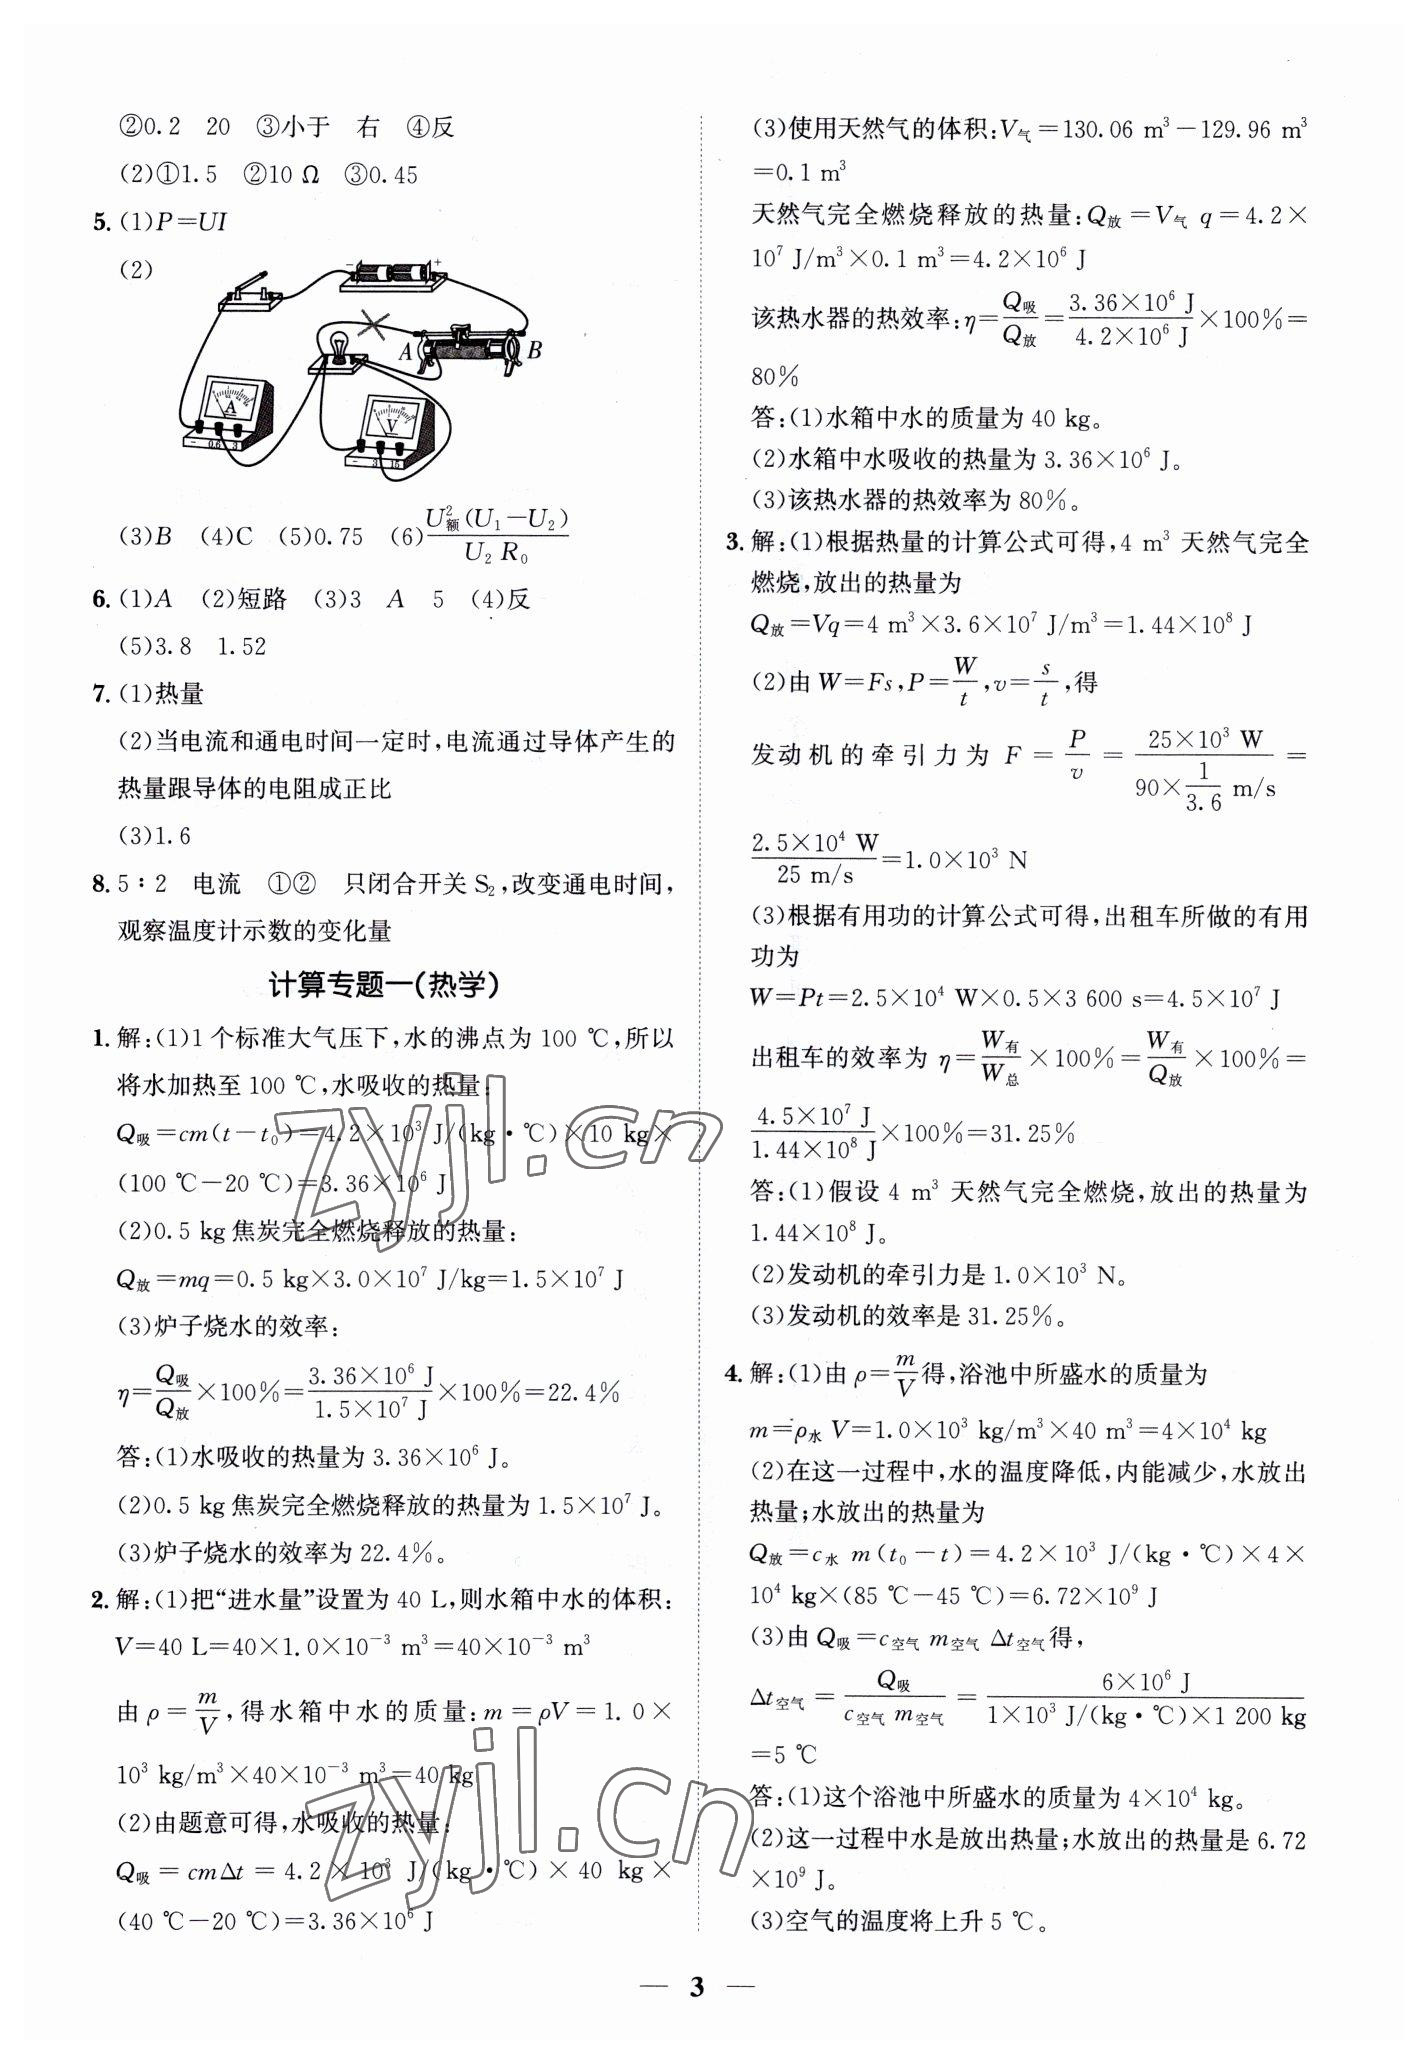 ②0.2 20 ③小于 右 ④反
(2)①1.5 ②10 Ω ③0.45
5. (1)P=UI
(2)
− +
A B
A
− 0.6 3
V
− 3 15
(3)B (4)C (5)0.75 (6)U²额(U₁−U₂)/U₂R₀
6. (1)A (2)短路 (3)3 A 5 (4)反
(5)3.8 1.52
7. (1)热量
(2)当电流和通电时间一定时,电流通过导体产生的
热量跟导体的电阻成正比
(3)1.6
8. 5∶2 电流 ①② 只闭合开关S₂,改变通电时间,
观察温度计示数的变化量
计算专题一(热学)
1. 解:(1)1个标准大气压下,水的沸点为100 ℃,所以
将水加热至100 ℃,水吸收的热量:
Q吸=cm(t−t₀)=4.2×10³ J/(kg·℃)×10 kg×
(100 ℃−20 ℃)=3.36×10⁶ J
(2)0.5 kg焦炭完全燃烧释放的热量:
Q放=mq=0.5 kg×3.0×10⁷ J/kg=1.5×10⁷ J
(3)炉子烧水的效率:
η=Q吸/Q放×100%=3.36×10⁶ J/1.5×10⁷ J×100%=22.4%
答:(1)水吸收的热量为3.36×10⁶ J。
(2)0.5 kg焦炭完全燃烧释放的热量为1.5×10⁷ J。
(3)炉子烧水的效率为22.4%。
2. 解:(1)把“进水量”设置为40 L,则水箱中水的体积:
V=40 L=40×1.0×10⁻³ m³=40×10⁻³ m³
由ρ=m/V,得水箱中水的质量:m=ρV=1.0×
10³ kg/m³×40×10⁻³ m³=40 kg
(2)由题意可得,水吸收的热量:
Q吸=cmΔt=4.2×10³ J/(kg·℃)×40 kg×
(40 ℃−20 ℃)=3.36×10⁶ J
(3)使用天然气的体积:V气=130.06 m³−129.96 m³
=0.1 m³
天然气完全燃烧释放的热量:Q放=V气 q=4.2×
10⁷ J/m³×0.1 m³=4.2×10⁶ J
该热水器的热效率:η=Q吸/Q放=3.36×10⁶ J/4.2×10⁶ J×100%=
80%
答:(1)水箱中水的质量为40 kg。
(2)水箱中水吸收的热量为3.36×10⁶ J。
(3)该热水器的热效率为80%。
3. 解:(1)根据热量的计算公式可得,4 m³天然气完全
燃烧,放出的热量为
Q放=Vq=4 m³×3.6×10⁷ J/m³=1.44×10⁸ J
(2)由W=Fs,P=W/t,v=s/t,得
发动机的牵引力为F=P/v=25×10³ W/90×1/3.6 m/s=
2.5×10⁴ W/25 m/s=1.0×10³ N
(3)根据有用功的计算公式可得,出租车所做的有用
功为
W=Pt=2.5×10⁴ W×0.5×3 600 s=4.5×10⁷ J
出租车的效率为η=W有/W总×100%=W有/Q放×100%=
4.5×10⁷ J/1.44×10⁸ J×100%=31.25%
答:(1)假设4 m³天然气完全燃烧,放出的热量为
1.44×10⁸ J。
(2)发动机的牵引力是1.0×10³ N。
(3)发动机的效率是31.25%。
4. 解:(1)由ρ=m/V得,浴池中所盛水的质量为
m=ρ水V=1.0×10³ kg/m³×40 m³=4×10⁴ kg
(2)在这一过程中,水的温度降低,内能减少,水放出
热量;水放出的热量为
Q放=c水 m(t₀−t)=4.2×10³ J/(kg·℃)×4×
10⁴ kg×(85 ℃−45 ℃)=6.72×10⁹ J
(3)由Q吸=c空气 m空气 Δt空气得,
Δt空气=Q吸/c空气 m空气=6×10⁶ J/1×10³ J/(kg·℃)×1 200 kg
=5 ℃
答:(1)这个浴池中所盛水的质量为4×10⁴ kg。
(2)这一过程中水是放出热量;水放出的热量是6.72
×10⁹ J。
(3)空气的温度将上升5 ℃。
— 3 —
zyjl.cn
zyjl.cn